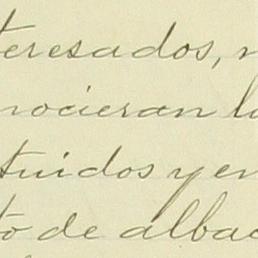 teresados, n
nocieran l
tuidos y en
to de albac